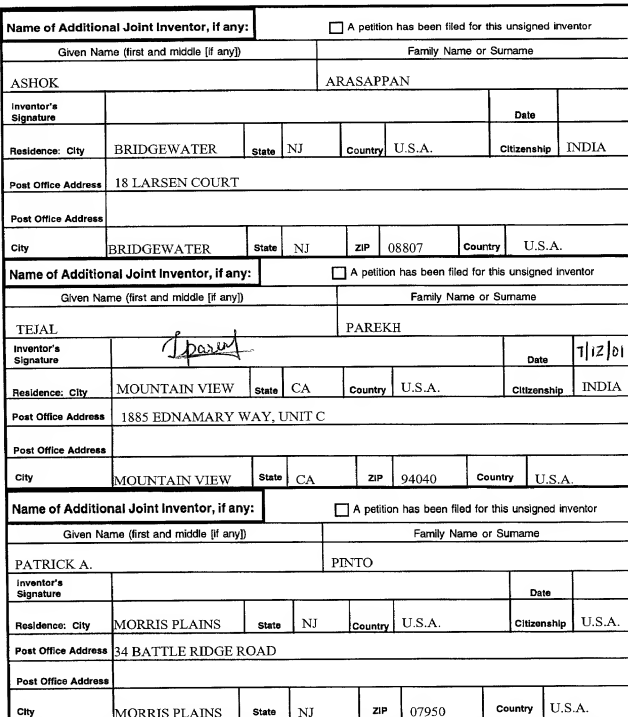 Name of Additional Joint Inventor, if any: A petition has been filed for this unsigned inventor
Given Name (first and middle [if any]) Family Name or Surname
ASHOK ARASAPPAN
Inventor's Signature Date
Residence: City BRIDGEWATER State NJ Country U.S.A. Citizenship INDIA
Post Office Address 18 LARSEN COURT
Post Office Address
City BRIDGEWATER State NJ ZIP 08807 Country U.S.A.
Name of Additional Joint Inventor, if any: A petition has been filed for this unsigned inventor
Given Name (first and middle [if any]) Family Name or Surname
TEJAL PAREKH
Inventor's Signature Date 7/12/01
Residence: City MOUNTAIN VIEW State CA Country U.S.A. Citizenship INDIA
Post Office Address 1885 EDNAMARY WAY, UNIT C
Post Office Address
City MOUNTAIN VIEW State CA ZIP 94040 Country U.S.A.
Name of Additional Joint Inventor, if any: A petition has been filed for this unsigned inventor
Given Name (first and middle [if any]) Family Name or Surname
PATRICK A. PINTO
Inventor's Signature Date
Residence: City MORRIS PLAINS State NJ Country U.S.A. Citizenship U.S.A.
Post Office Address 34 BATTLE RIDGE ROAD
Post Office Address
City MORRIS PLAINS State NJ ZIP 07950 Country U.S.A.